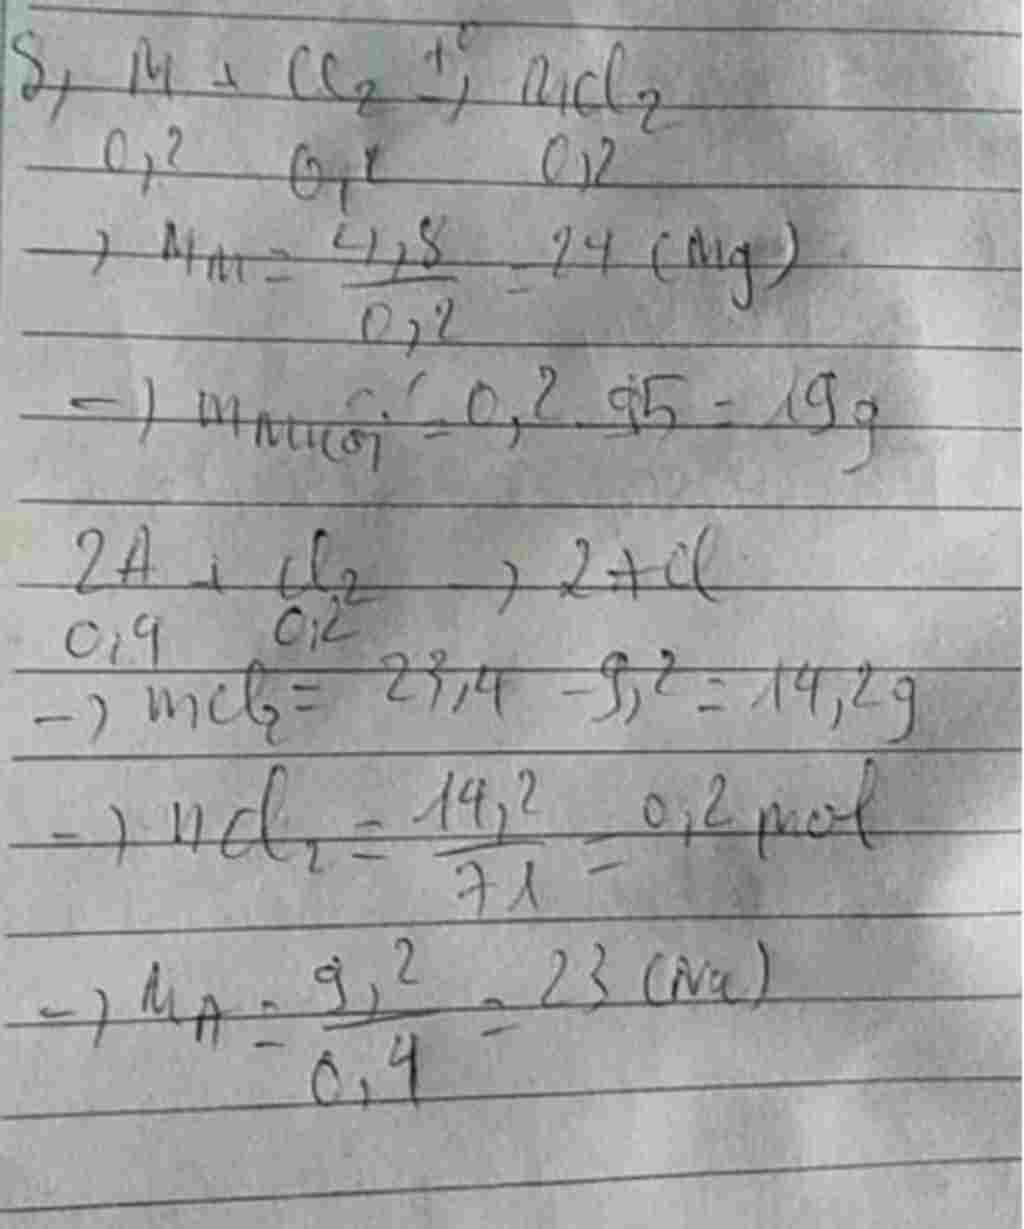 5, M + Cl₂ t°→ MCl₂
0,2 0,2 0,2
→ M_M = 4,8/0,2 = 24 (Mg)
→ = 0,2 . 95 = 19g
2A + Cl₂ → 2ACl
0,4 0,2
→ mCl₂ = 23,4 - 9,2 = 14,2g
→ nCl₂ = 14,2/71 = 0,2 mol
→ M_A = 9,2/0,4 = 23 (Na)